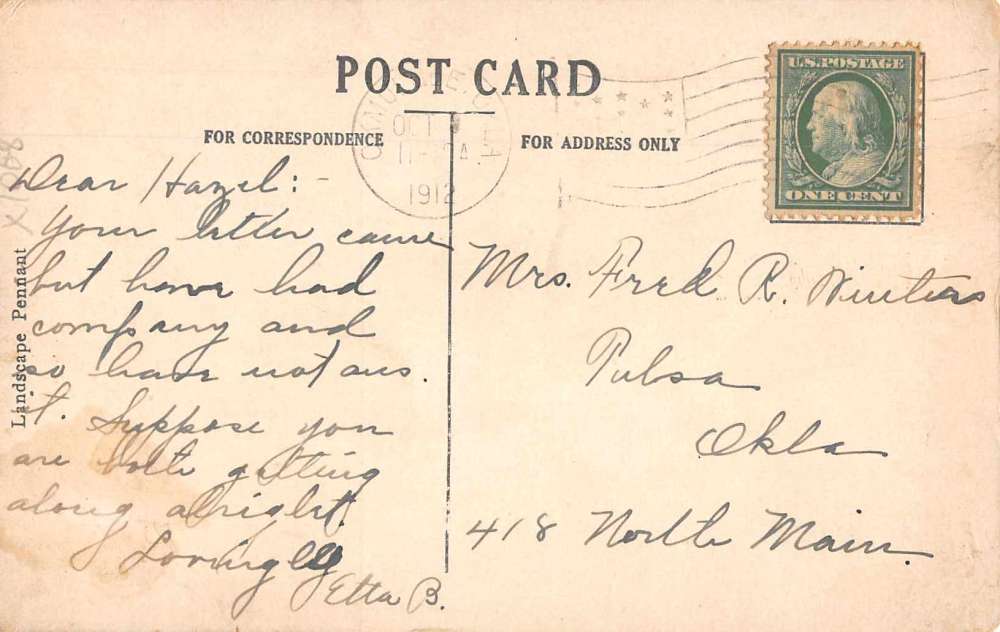 POST CARD
FOR CORRESPONDENCE
FOR ADDRESS ONLY
OKLA.
OCT
11-
1912
U.S. POSTAGE
ONE CENT
Landscape Pennant
X1068
Dear Hazel:-
Your letter came
but have had
company and
so have not ans.
it. Suppose you
are both getting
along alright.
Lovingly
Etta B.
Mrs. Fred R. Winters
Tulsa
Okla
418 North Main.